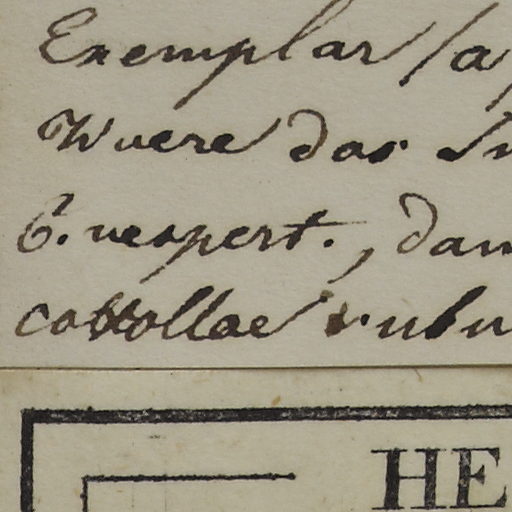 Exemplar (a
Wuere das In
C. vespert., dan
corollae
HE